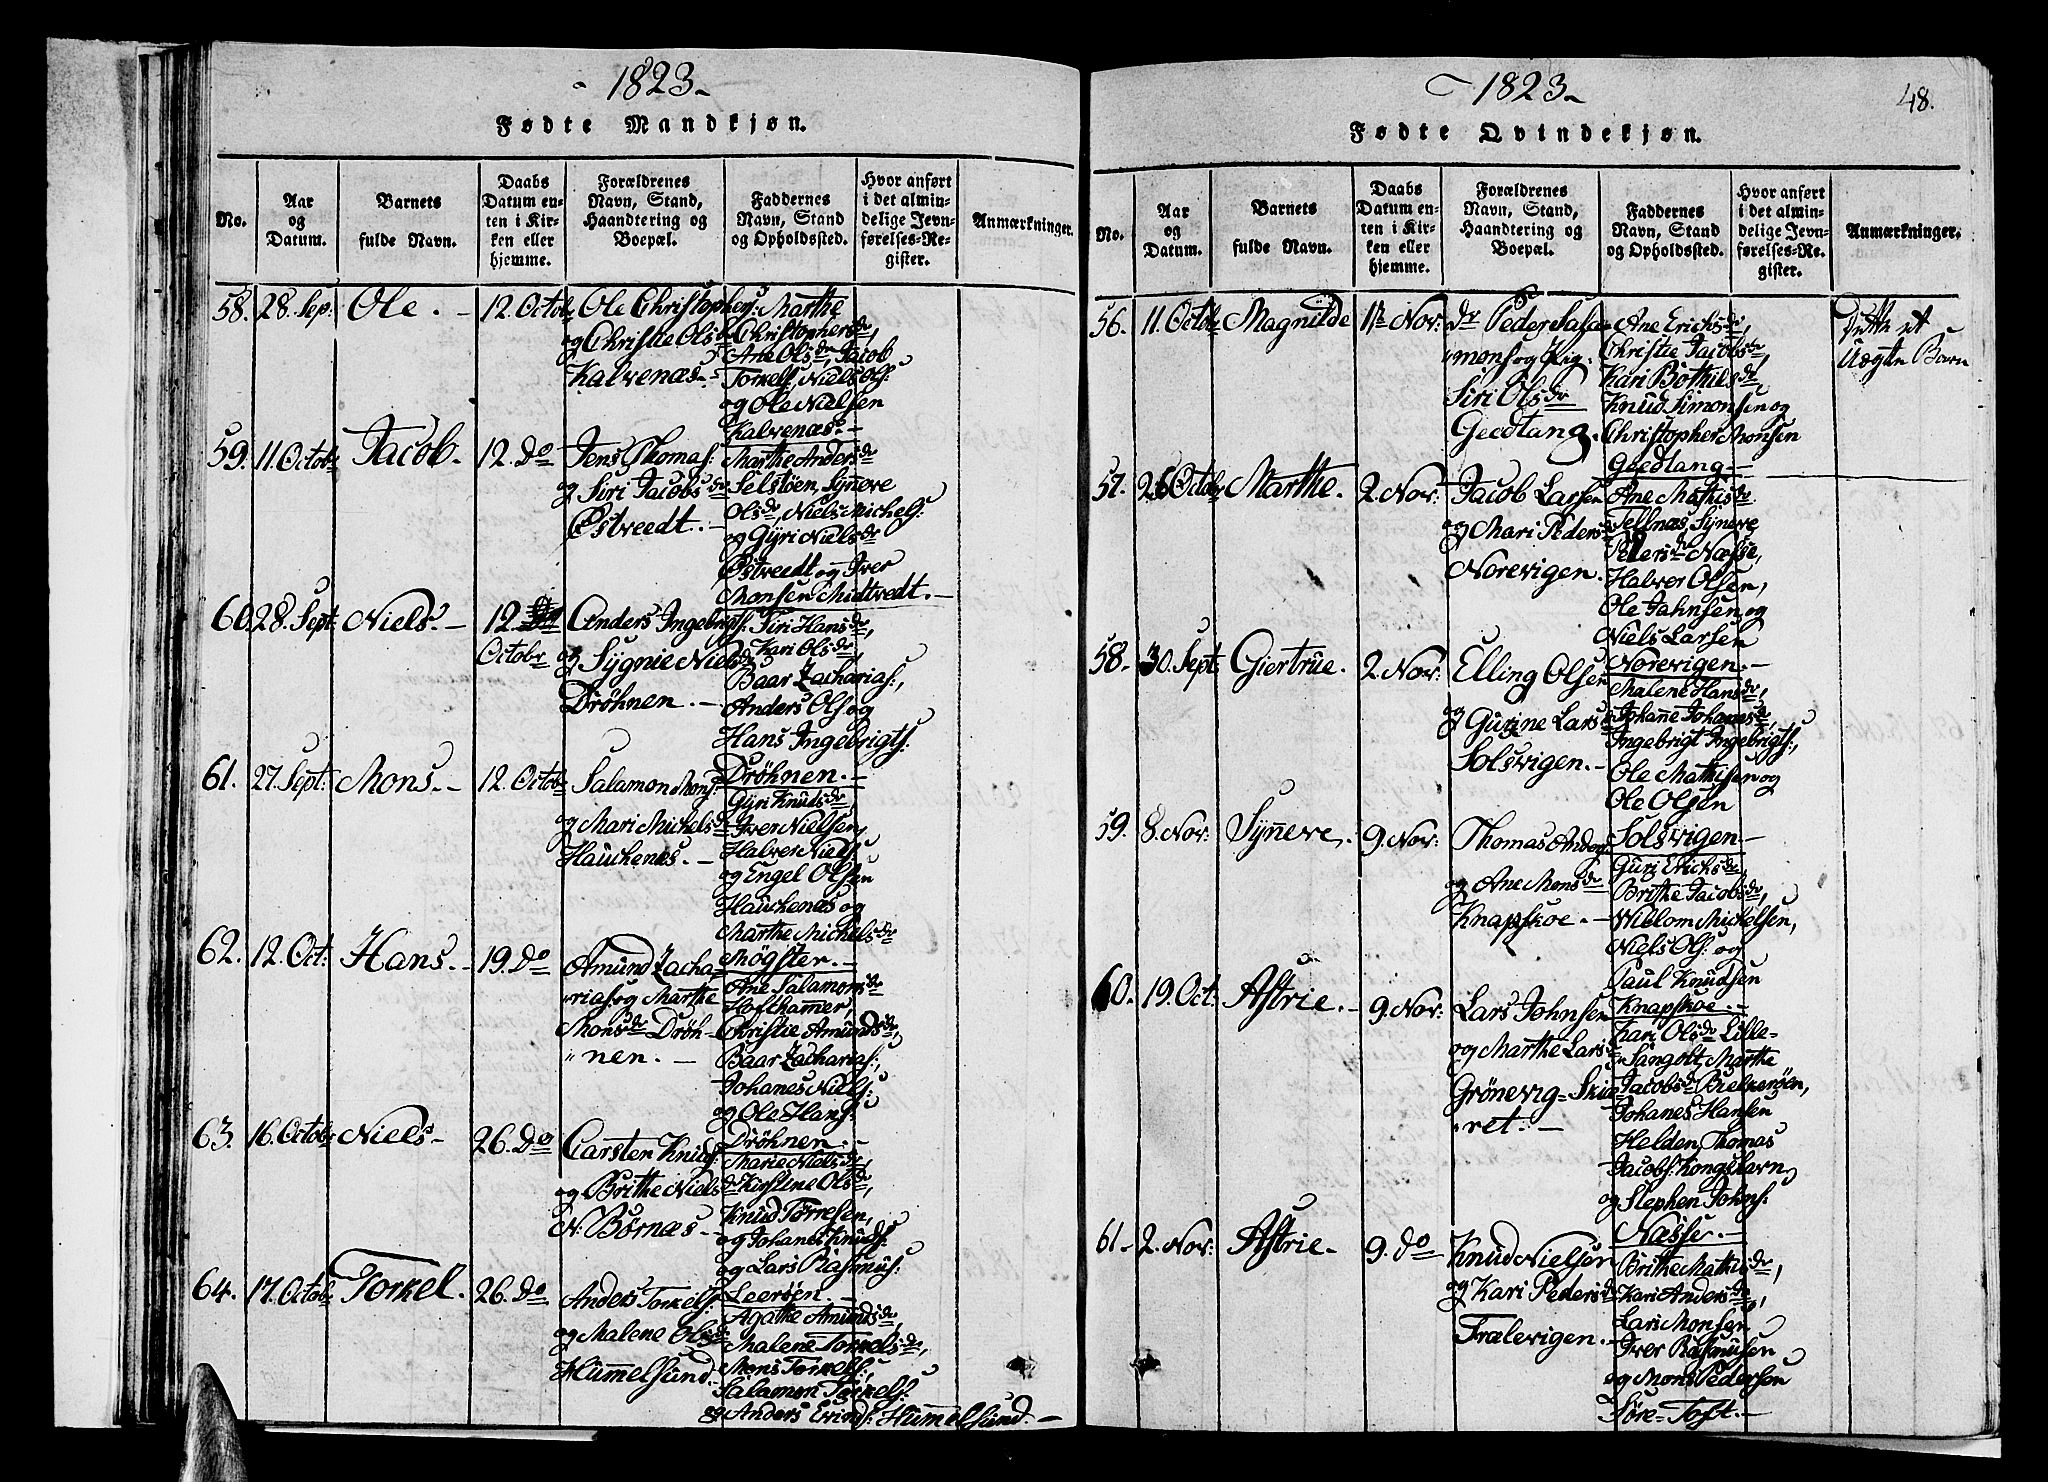 1823
Fødte Mandkjøn.
No.
Aar
og
Datum.
Barnets
fulde Navn.
Daabs
Datum en-
ten i Kir-
ken eller
hjemme.
Forældrenes
Navn, Stand,
Haandtering og
Boepæl.
Faddernes
Navn, Stand
og Opholdssted.
Hvor anført
i det almin-
delige Jevn-
førelses-Re-
gister.
Anmærkninger.
58. 28. Sep: Ole. 12. Octob:
Ole Christophers:
og Christie Olsdr
Kalvenæs
Marthe
Christophersdr,
Ane Olsdr, Jacob
Torkels: Niels Ols:
og Ole Nielsen
Kalvenæs.
59. 11. Octob: Jacob. 12. Do
Jens Thomas:
og Siri Jacobsdr
Østveedt.
Marthe Andersdr
Selstöen, Synneve
Olsdr, Niels Michels:
og Gyri Nielsdr
Østveedt og Iver
Monsen Midtvedt.
60. 28. Sept: Niels. 12.
Octobr
Anders Ingebrigts:
og Sygnie Nielsdr
Dröhnen.
Siri Hansdr,
Kari Olsdr,
Baar Zacharias:,
Anders Ols: og
Hans Ingebrigts:
Dröhnen.
61. 27. Sept: Mons. 12. Octob:
Salamon Mons:
og Mari Mickelsdr
Hauckenæs.
Gyri Knudsdr,
Iver Nielsen,
Halver Niels:
og Engel Olsen
Hauckenæs og
Marthe Mickelsdr
Mögster.
62. 12. Oct: Hans. 19. Do
Amund Zacha-
rias: og Marthe
Monsdr Dröh-
nen.
Ane Salamonsdr
Hofthamer,
Christie Amundsdr,
Baar Zacharias:,
Johanes Niels:
og Ole Hans:
Dröhnen.
63. 16. Octob: Niels 26. Do
Carsten Knuds:
og Brithe Nielsdr
N: Börnæs
Marie Nielsdr,
Kirstine Olsdr,
Knud Torresen,
og Johanes Knuds:
og Lars Rasmus:
Leeröen.
64. 17. Octob: Torkel. 26. Do
Anders Torkels:
og Malene Olsdr
Hummelsund.
Agathe Amundsdr,
Malene Torkelsdr,
Mons Torkels:,
Salamon Torkels:
og Anders Erinds: Hummelsund.
1823
48.
Fødte Qvindekjøn.
No.
Aar
og
Datum.
Barnets
fulde Navn.
Daabs
Datum en-
ten i Kir-
ken eller
hjemme.
Forældrenes
Navn, Stand,
Haandtering og
Boepæl.
Faddernes
Navn, Stand
og Opholdssted.
Hvor anført
i det almin-
delige Jevn-
førelses-Re-
gister.
Anmærkninger.
56. 11. Octob: Magnilde Nov:
Peder Sala-
mons: og Pig.
Siri Olsdr
Geedtang.
Ane Ericksdr,
Christie Jacobsdr,
Kari Bothelsdr
Knud Simonsen og
Christopher Monsen
Geedtang
Dette et
Uægte Barn
57. 26 Octob: Marthe. 2. Nov:
Jacob Larsen
og Mari Pedersdr
Norevigen.
Ane Mathisdr
Tellnæs, Synneve
Pedersdr Næsse,
Halver Olsen,
Ole Jahnsen og
Niels Larsen
Norevigen.
58. 30. Sept: Giertrue. 2. Nov:
Elling Olsen
og Gurine Larsdr
Solsvigen.
Malene Hansdr,
Johanne Johannesdr,
Ingebrigt Ingebrigts:,
Ole Mathisen og
Ole Olsen
Solsvigen.
59. 8. Nov: Synneve. 9. Nov:
Thomas Anders:
og Ane Monsdr
Knapskoe.
Guri Ericksdr,
Brithe Jacobsdr,
Willom Mickelsen,
Niels Ols: og
Paul Knudsen
Knapskoe.
60. 19. Oct: Astrie. 9. Nov:
Lars Johnsen
og Marthe Larsdr
Grönevig-Skia-
ret.
Kari Olsdr Lille-
Sangolt, Marthe
Jacobsdr Bielkeröen,
Johanes Hansen
Helden, Thomas
Jacobs: Kongshavn
og Stephen Johns:
Næsse.
61. 2. Nov: Astrie 9. Do
Knud Nielsen
og Kari Pedersdr
Trælevigen.
Brithe Mathisdr,
Kari Andersdr,
Lars Monsen
Iver Rasmusen
og Mons Pedersen
Söre-Toft.